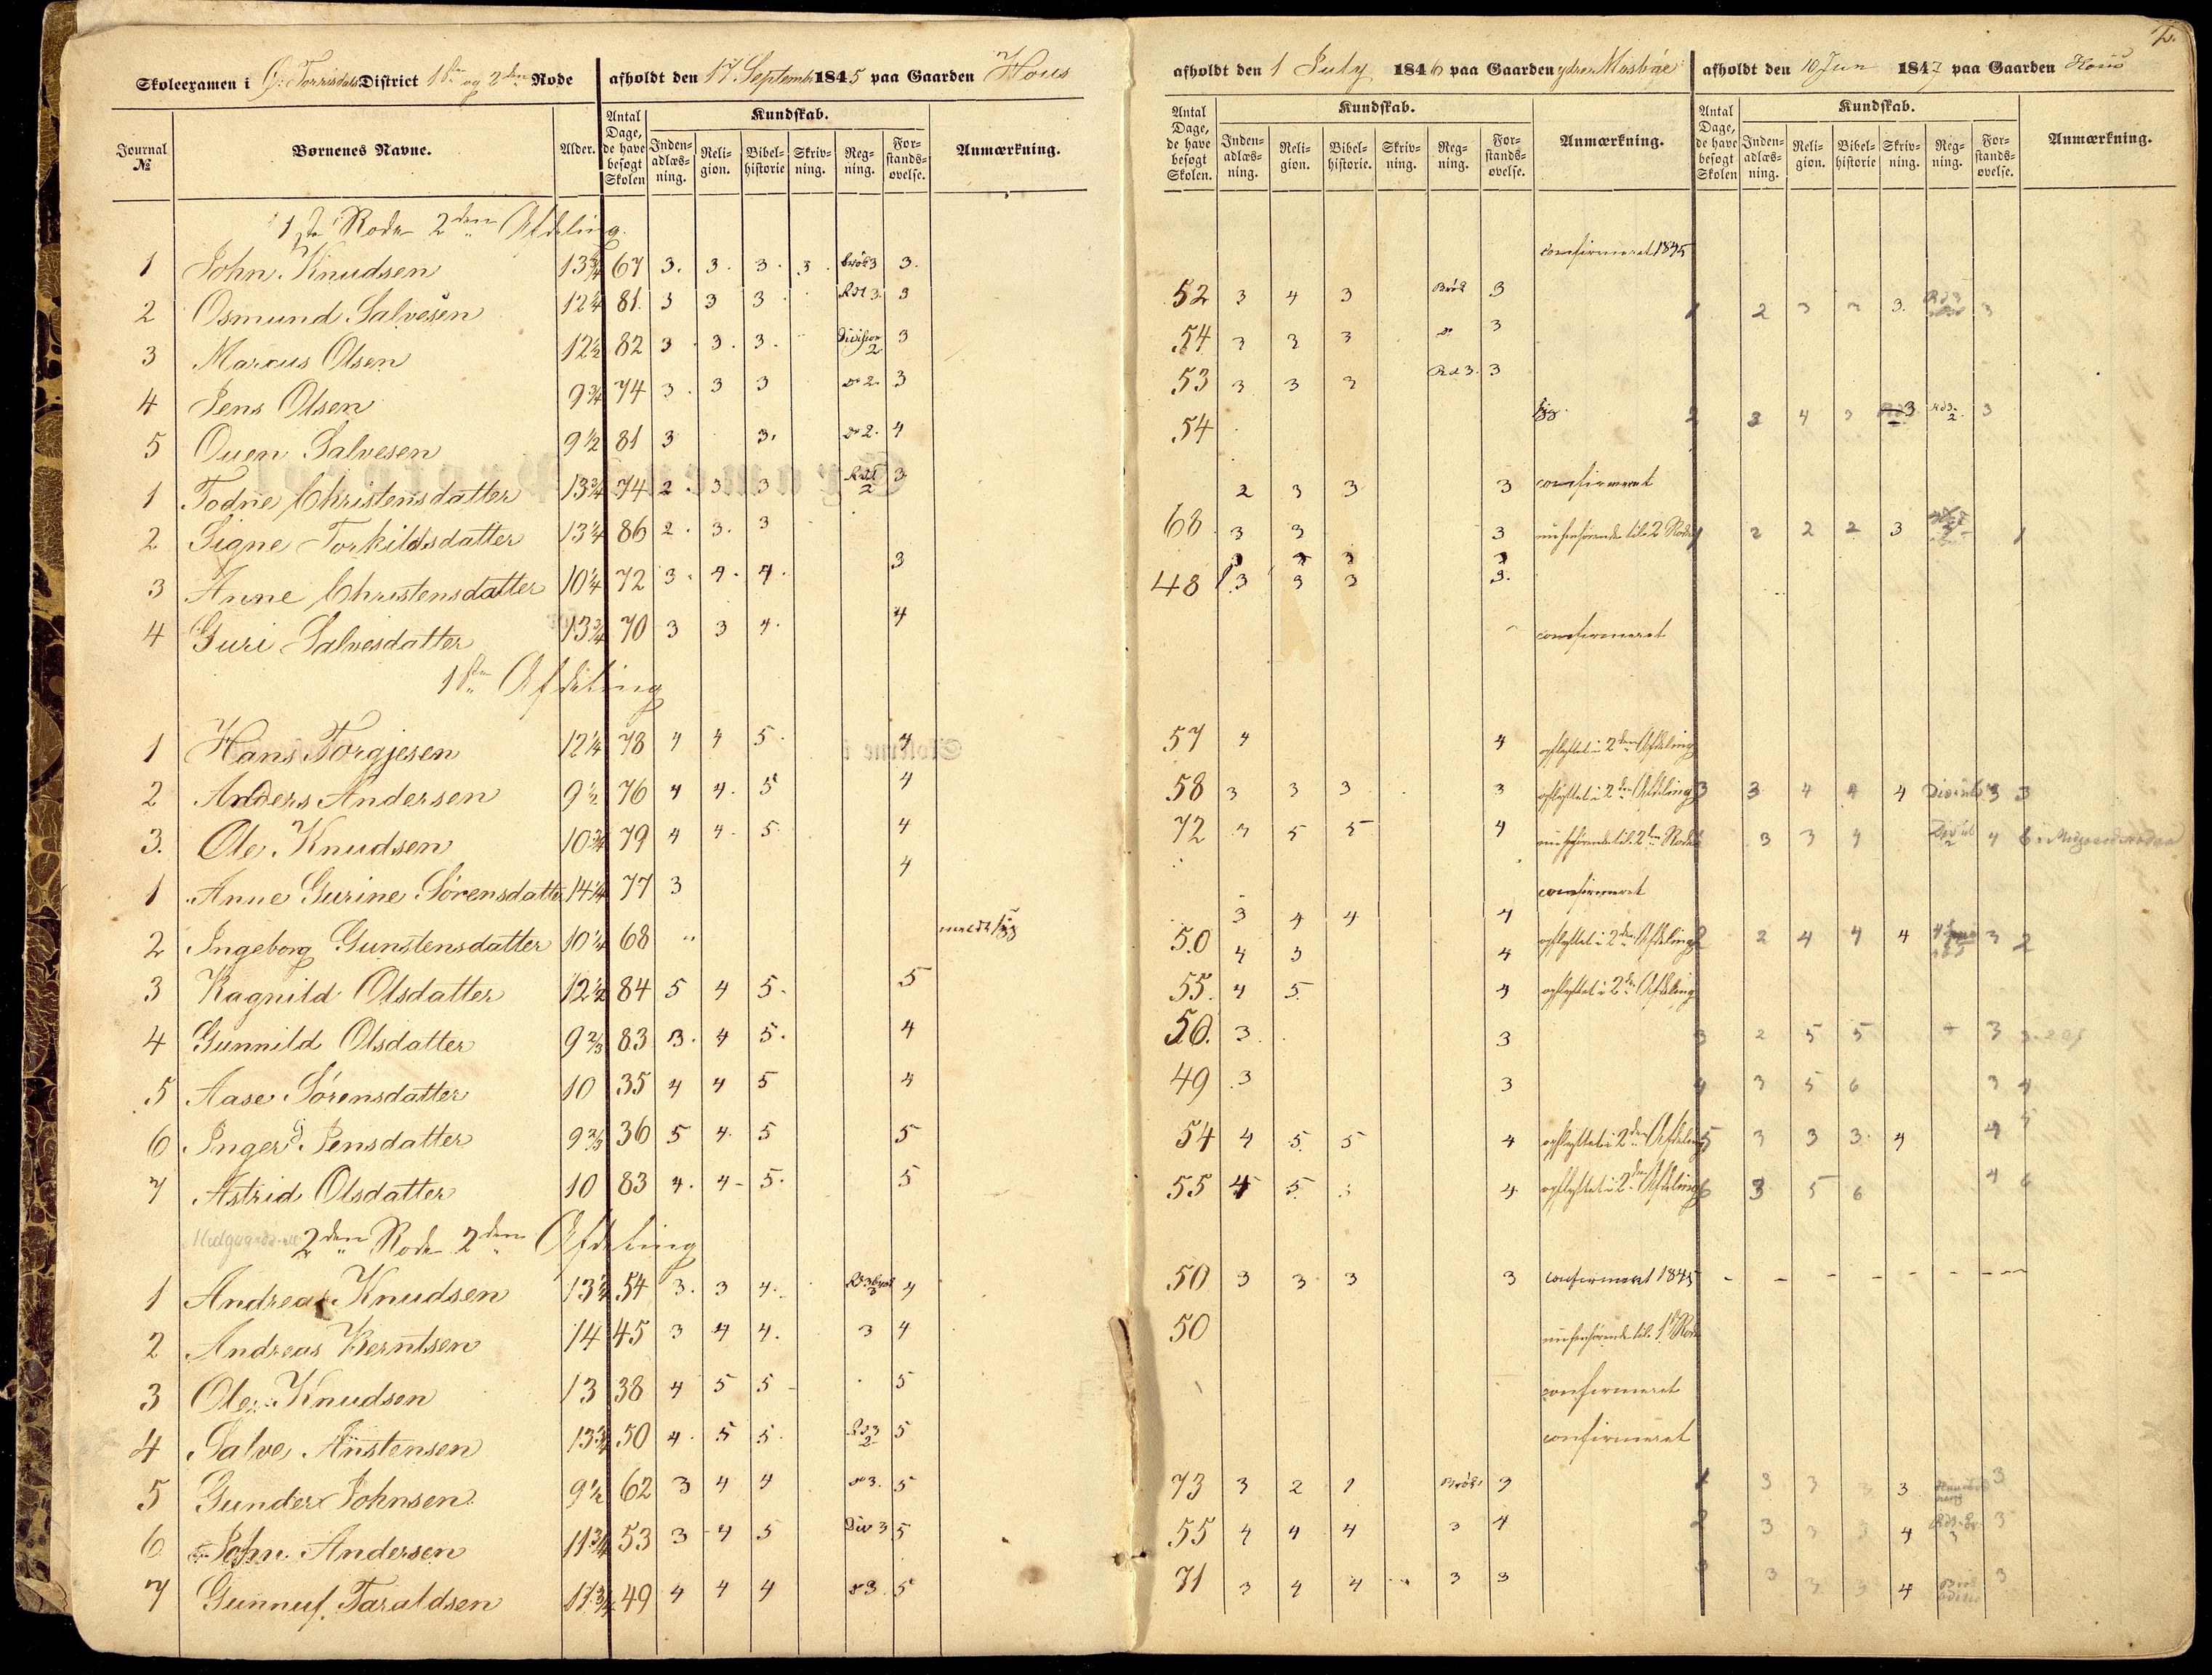 2.
Skoleexamen i Ø: Torrisdals District 1ste og 2den Rode afholdt den 17 Septembr 1845 paa Gaarden Hous
afholdt den 1 July 1846 paa Gaarden ydre Mosbøe afholdt den 10 Jun 1847 paa Gaarden Hous
Journal № Børnenes Navne. Alder. Antal Dage, de have besøgt Skolen Kundskab. Inden-adlæs-ning. Reli-gion. Bibel-historie Skriv-ning. Reg-ning. For-stands-øvelse. Anmærkning.
Antal Dage, de have besøgt Skolen. Kundskab. Inden-adlæs-ning. Reli-gion. Bibel-historie. Skriv-ning. Reg-ning. For-stands-øvelse. Anmærkning.
Antal Dage, de have besøgt Skolen Kundskab. Inden-adlæs-ning. Reli-gion. Bibel-historie Skriv-ning. Reg-ning. For-stands-øvelse. Anmærkning.
1ste Rode 2den Afdeling.
1 John Knudsen 13¾ 67 3. 3. 3. 3. brøk 3 3. confirmeret 1845
2 Osmund Salvesen 12¼ 81. 3 3 3 Rdt 3. 3 52 3 4 3 Brøk 3 1 2 3 3 3. 3
3 Marcus Olsen 12½ 82 3. 3. 3. Division 2 3 54 3 3 3 do 3
4 Jens Olsen 9¾ 74 3. 3 3 do 2. 3 53 3 3 3 Rd 3. 3
5 Ouen Salvesen 9½ 81 3 3. do 2. 4 54 syg. 2 3 4 3 3 3
1 Todne Christensdatter 13¾ 74 2. 3 3 Rdt 2 3 2 3 3 3 confirmeret
2 Signe Torkildsdatter 13¼ 86 2. 3. 3 68 3 3 3 henhørende til 2 Rode 1 2 2 2 3 1
3 Anne Christensdatter 10¼ 72 3. 4. 4. 3 48 3 3 3 3.
4 Guri Salvesdatter 13¾ 70 3 3 4. 4 confirmeret
1ste Afdeling
1 Hans Torgjesen 12¼ 78 4 4 5. 4 57 4 4 opflyttet i 2den Afdeling
2 Anders Andersen 9½ 76 4 4. 5 4 58 3 3 3 3 opflyttet i 2den Afdeling 3 3 4 4 4 3 3
3. Ole Knudsen 10¾ 79 4 4. 5. 4 72 4 5 5 4 henhørende til 2den Rode 3 3 4 4
1 Anne Gurine Sörensdatter 14¼ 77 3 4 confirmeret
2 Ingeborg Gunstensdatter 10¼ 68 " meldt syg 50 4 3 4 opflyttet i 2den Afdeling 2 2 4 4 4 3 2
3 Ragnild Olsdatter 12½ 84 5 4 5. 5 55. 4 5. 4 opflyttet i 2den Afdeling
4 Gunnild Olsdatter 9⅔ 83 3. 4 5. 4 50. 3. 3 3 2 5 5 4 3
5 Aase Sörensdatter 10 35 4 4 5 4 49 3 3 4 3 5 6 3 4
6 Inger Jensdatter 9⅔ 36 5 4. 5 5 54 4 5. 5 4 opflyttet i 2den Afdeling 5 3 3 3. 4 4 5
7 Astrid Olsdatter 10 83 4. 4- 5. 5 55 4 5. 4 opflyttet i 2den Afdeling 6 3 5 6 4 6
2den Rode 2den Afdeling
1 Andreas Knudsen 13½ 54 3. 3 4. 4 50 3 3 3 3 confirmeret 1845
2 Andreas Berntsen 14 45 3 4 4. 3 4 50 henhørende til 1ste Rode
3 Ole Knudsen 13 38 4 5 5 5 confirmeret
4 Salve Anstensen 13¾ 50 4. 5 5. Rd 3 2 5 confirmeret
5 Gunder Johnsen. 9½ 62 3 4 4 do 3. 5 73 3 2 Brøk 3 1 3 3 3 3. 3
6 John Andersen 11¾ 53 3 4 5 Div 3 5 55 4 4 4 3 4 2 3 3 3 4 3
7 Gunnuf Taraldsen 11¾ 49 4 4 4 do 3. 5 71 3 4 4 3 3 3 3 3 3 4 3